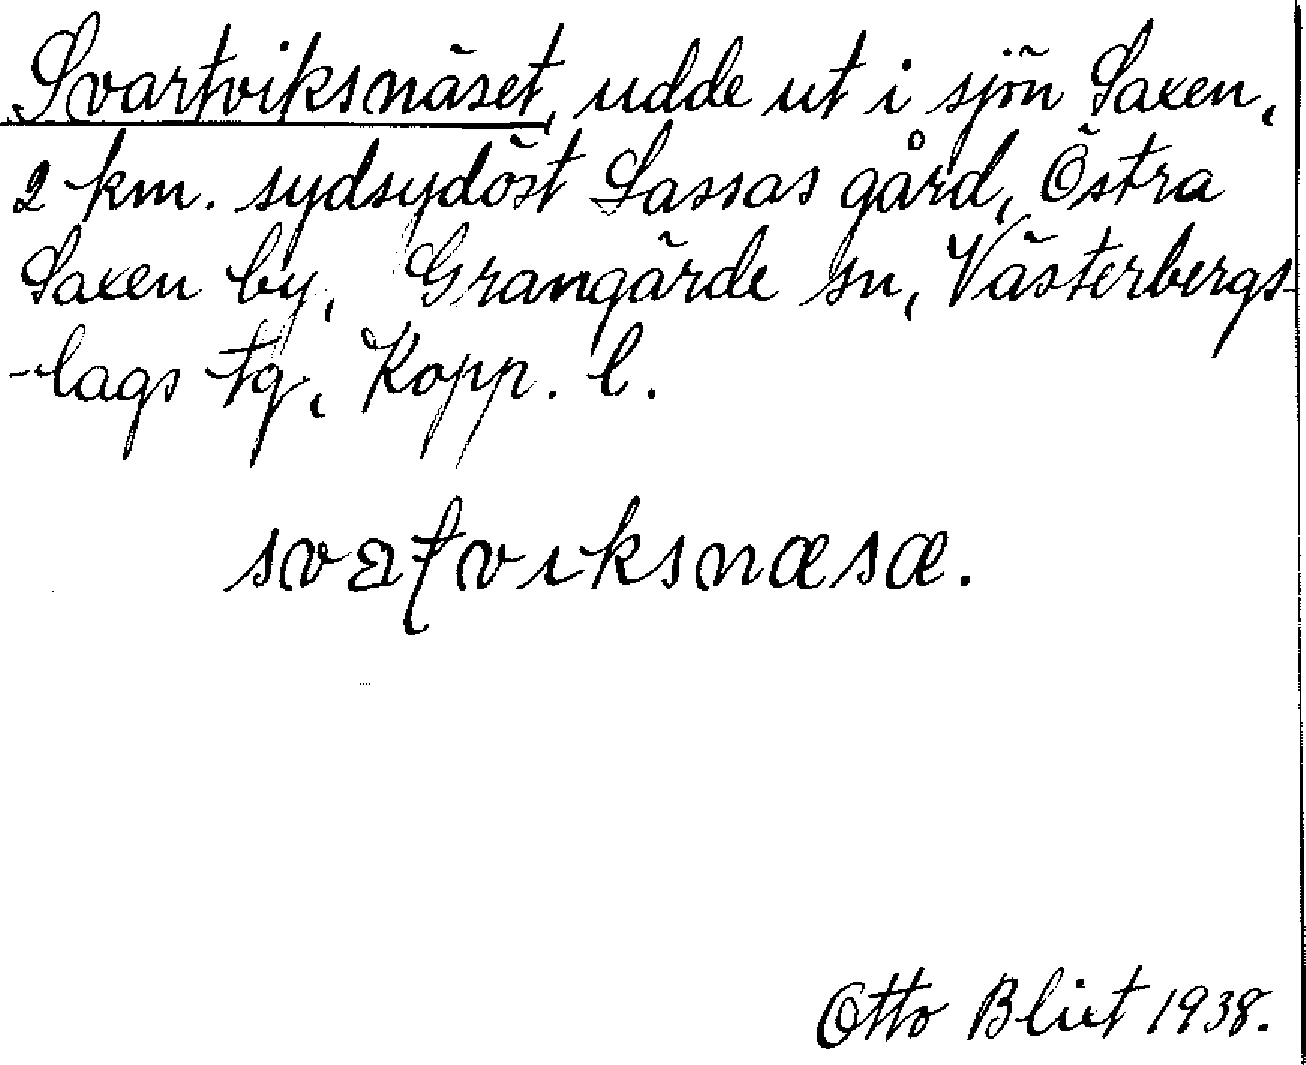 Svartviksnäset, udde ut i sjön Saxen,
2 km. sydsydöst Lassas gård, Östra
Saxen by, Grangärde sn, Västerbergs-
-lags tg, Kopp. l.
svaʈviksnæsæ.
Otto Blixt 1938.